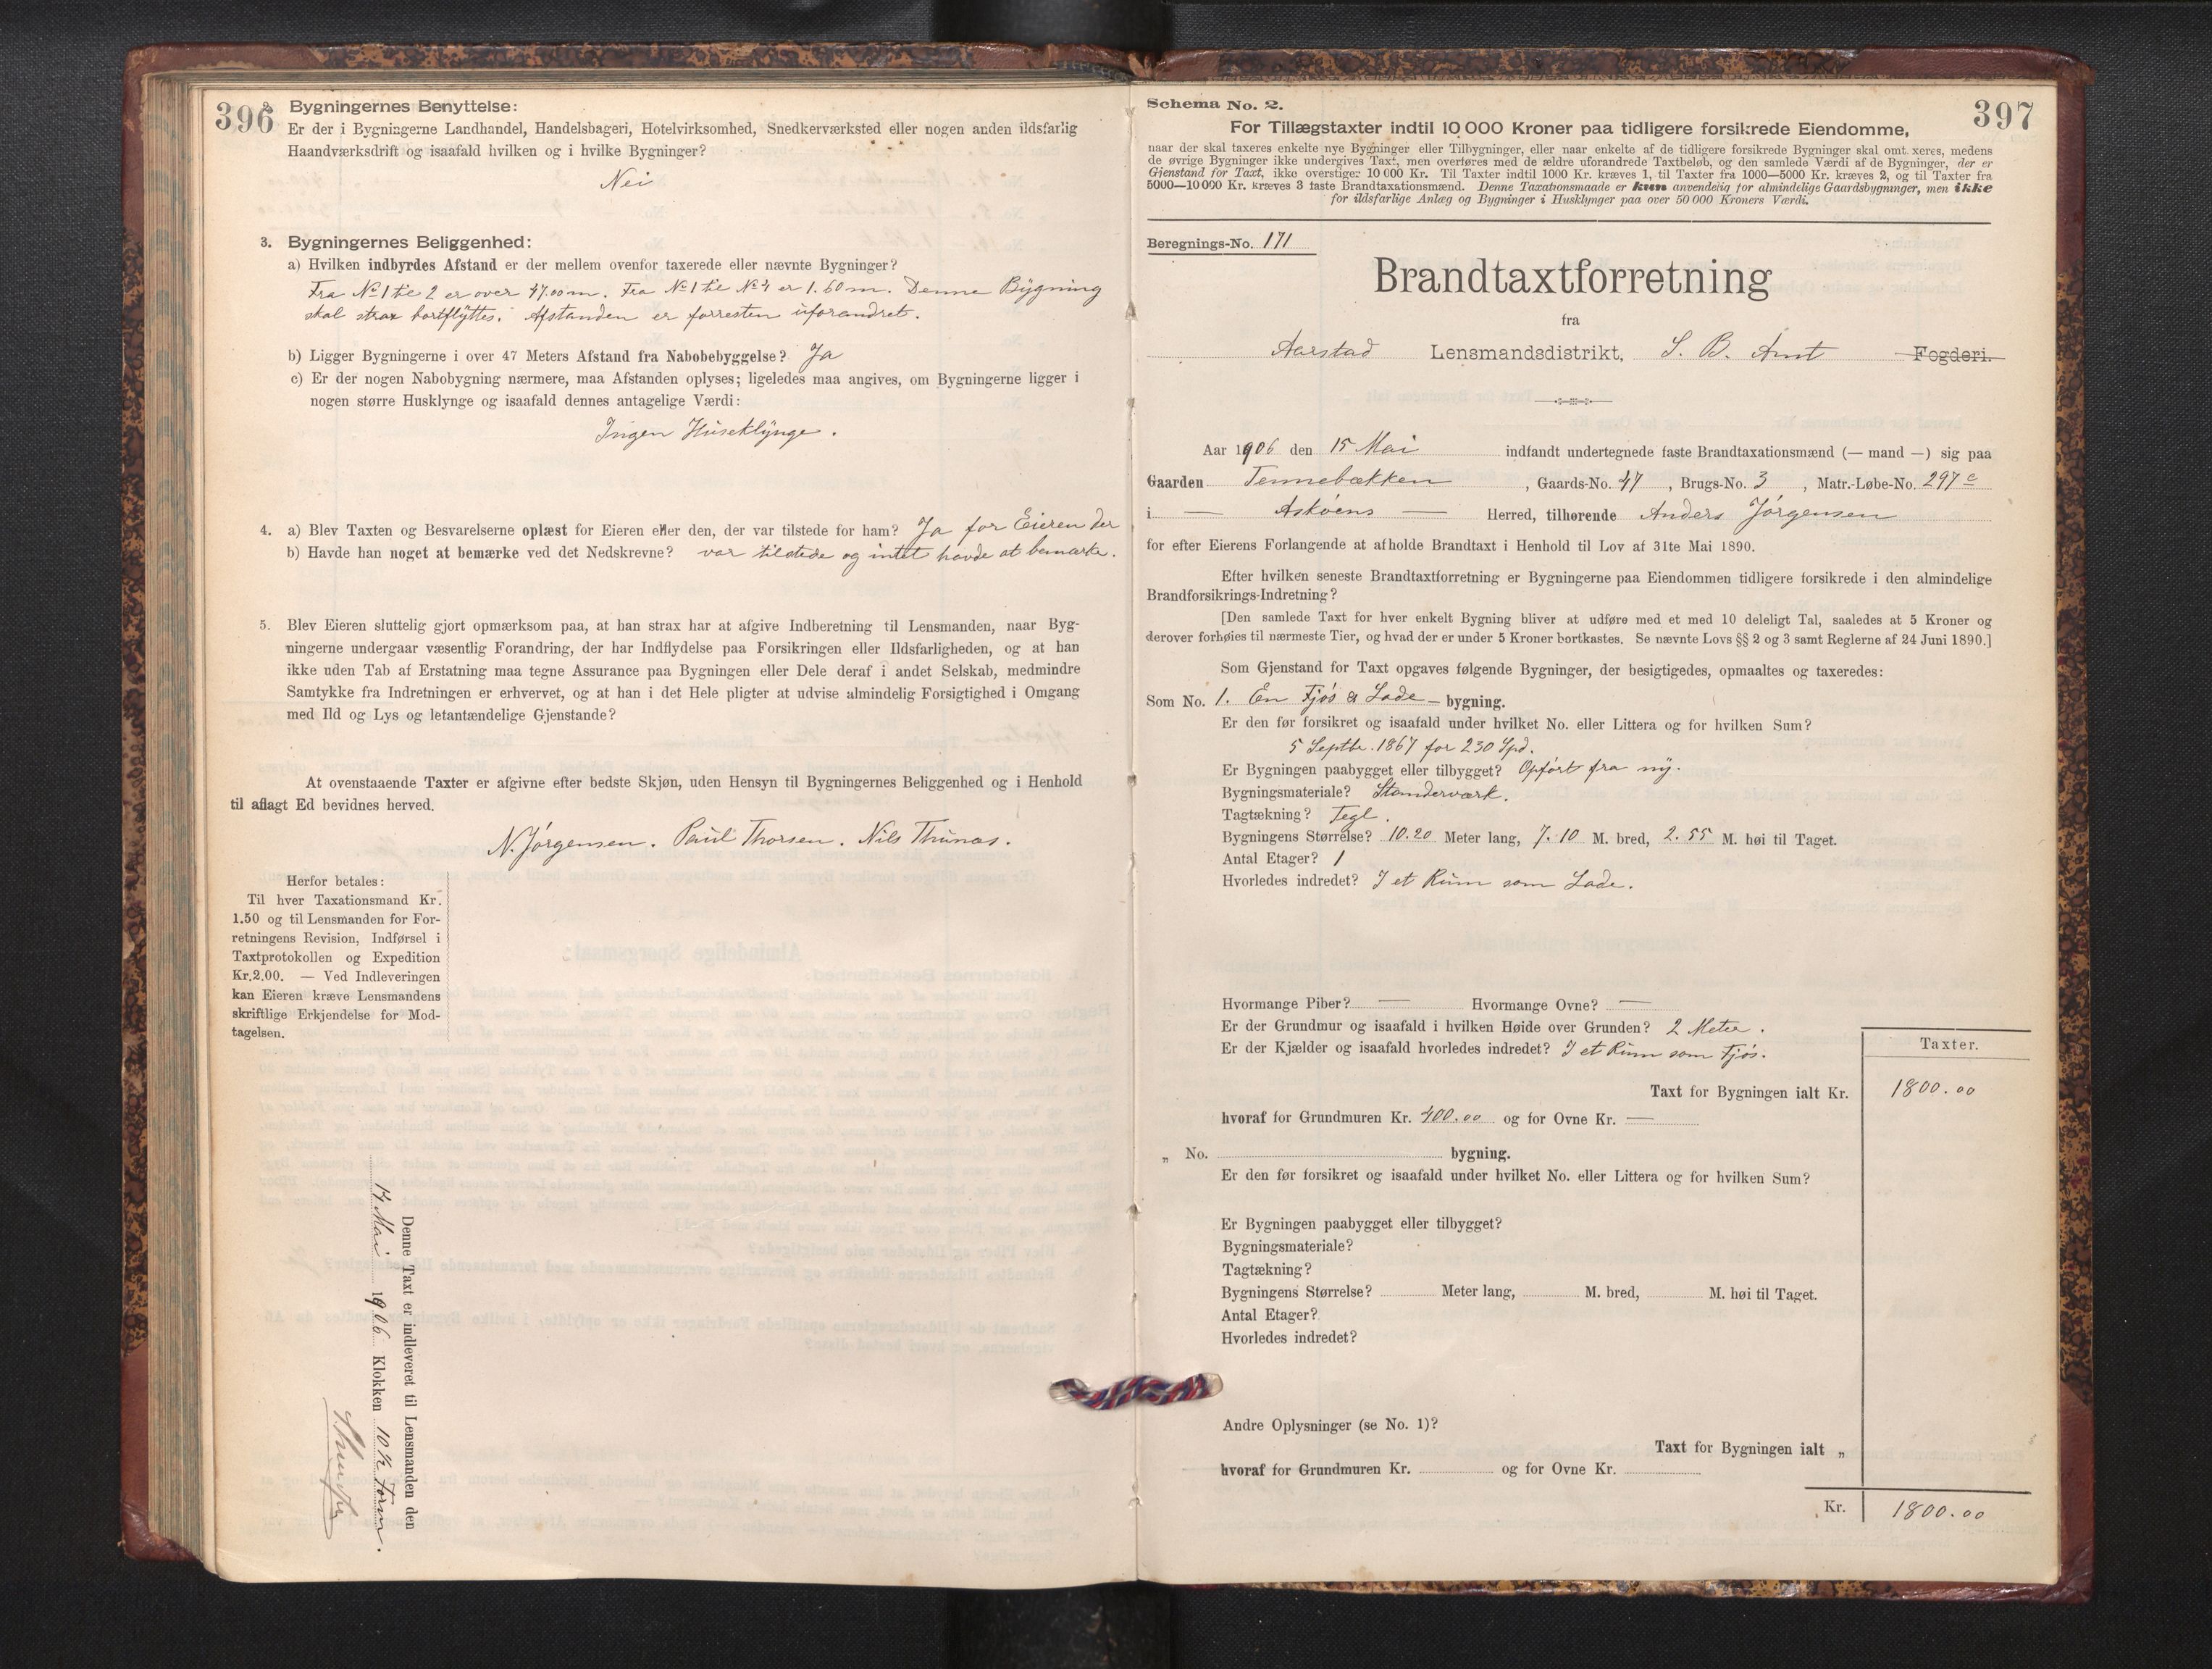 396
2. Bygningernes Benyttelse:
Er der i Bygningerne Landhandel, Handelsbageri, Hotelvirksomhed, Snedkerværksted eller nogen anden ildsfarlig
Haandværksdrift og isaafald hvilken og i hvilke Bygninger?
Nei
3. Bygningernes Beliggenhed:
a) Hvilken indbyrdes Afstand er der mellem ovenfor taxerede eller nævnte Bygninger?
Fra No 1 til 2 er over 47.00 m. Fra No 1 til No 4 er 1.60 m. Denne Bygning
skal strax bortflyttes. Afstanden er forresten uforandret.
b) Ligger Bygningerne i over 47 Meters Afstand fra Nabobebyggelse? Ja
c) Er der nogen Nabobygning nærmere, maa Afstanden oplyses; ligeledes maa angives, om Bygningerne ligger i
nogen større Husklynge og isaafald dennes antagelige Værdi:
Ingen Huseklynge.
4. a) Blev Taxten og Besvarelserne oplæst for Eieren eller den, der var tilstede for ham? Ja for Eieren der
b) Havde han noget at bemærke ved det Nedskrevne? var tilstede og intet havde at bemærke.
5. Blev Eieren sluttelig gjort opmærksom paa, at han strax har at afgive Indberetning til Lensmanden, naar Byg-
ningerne undergaar væsentlig Forandring, der har Indflydelse paa Forsikringen eller Ildsfarligheden, og at han
ikke uden Tab af Erstatning maa tegne Assurance paa Bygningen eller Dele deraf i andet Selskab, medmindre
Samtykke fra Indretningen er erhvervet, og at han i det Hele pligter at udvise almindelig Forsigtighed i Omgang
med Ild og Lys og letantændelige Gjenstande?
At ovenstaaende Taxter er afgivne efter bedste Skjøn, uden Hensyn til Bygningernes Beliggenhed og i Henhold
til aflagt Ed bevidnes herved.
N. Jørgensen. Paul Thorsen. Nils Thunæs.
Herfor betales:
Til hver Taxationsmand Kr.
1.50 og til Lensmanden for For-
retningens Revision, Indførsel i
Taxtprotokollen og Expedition
Kr. 2.00. — Ved Indleveringen
kan Eieren kræve Lensmandens
skriftlige Erkjendelse for Mod-
tagelsen.
Denne Taxt er indleveret til Lensmanden den
17 Mai 1906 Klokken 10 1/2 Form.
397
Schema No. 2.
For Tillægstaxter indtil 10 000 Kroner paa tidligere forsikrede Eiendomme,
naar der skal taxeres enkelte nye Bygninger eller Tilbygninger, eller naar enkelte af de tidligere forsikrede Bygninger skal omtaxeres, medens
de øvrige Bygninger ikke undergives Taxt, men overføres med de ældre uforandrede Taxtbeløb, og den samlede Værdi af de Bygninger, der er
Gjenstand for Taxt, ikke overstiger 10 000 Kr. Til Taxter indtil 1000 Kr. kræves 1, til Taxter fra 1000—5000 Kr. kræves 2, og til Taxter fra
5000—10 000 Kr. kræves 3 faste Brandtaxationsmænd. Denne Taxationsmaade er kun anvendelig for almindelige Gaardsbygninger, men ikke
for ildsfarlige Anlæg og Bygninger i Husklynger paa over 50 000 Kroners Værdi.
Beregnings-No. 171
Brandtaxtforretning
fra
Aarstad Lensmandsdistrikt, S. B. Amt Fogderi.
Aar 1906 den 15 Mai indfandt undertegnede faste Brandtaxationsmænd (— mand —) sig paa
Gaarden Tennebækken, Gaards-No. 47, Brugs-No. 3, Matr.-Løbe-No. 297 c
i — Askøens — Herred, tilhørende Anders Jørgensen
for efter Eierens Forlangende at afholde Brandtaxt i Henhold til Lov af 31te Mai 1890.
Efter hvilken seneste Brandtaxtforretning er Bygningerne paa Eiendommen tidligere forsikrede i den almindelige
Brandforsikrings-Indretning?
[Den samlede Taxt for hver enkelt Bygning bliver at udføre med et med 10 deleligt Tal, saaledes at 5 Kroner og
derover forhøies til nærmeste Tier, og hvad der er under 5 Kroner bortkastes. Se nævnte Lovs §§ 2 og 3 samt Reglerne af 24 Juni 1890.]
Som Gjenstand for Taxt opgaves følgende Bygninger, der besigtigedes, opmaaltes og taxeredes:
Som No. 1. En Fjøs & Lade — bygning.
Er den før forsikret og isaafald under hvilket No. eller Littera og for hvilken Sum?
5 Septbr. 1867 for 230 Spd.
Er Bygningen paabygget eller tilbygget? Opført fra ny.
Bygningsmateriale? Standerværk.
Tagtækning? Tegl.
Bygningens Størrelse? 10.20 Meter lang, 7.10 M. bred, 2.55 M. høi til Taget.
Antal Etager? 1
Hvorledes indredet? I et Rum som Lade.
Hvormange Piber? — Hvormange Ovne? —
Er der Grundmur og isaafald i hvilken Høide over Grunden? 2 Meter.
Er der Kjælder og isaafald hvorledes indredet? I et Rum som Fjøs.
Taxter.
Taxt for Bygningen ialt Kr. 1800.00
hvoraf for Grundmuren Kr. 400.00 og for Ovne Kr. —
„ No. bygning.
Er den før forsikret og isaafald under hvilket No. eller Littera og for hvilken Sum?
Er Bygningen paabygget eller tilbygget?
Bygningsmateriale?
Tagtækning?
Bygningens Størrelse? Meter lang, M. bred, M. høi til Taget.
Antal Etager?
Hvorledes indredet?
Andre Oplysninger (se No. 1)?
Taxt for Bygningen ialt „
hvoraf for Grundmuren Kr. og for Ovne Kr.
Kr. 1800.00